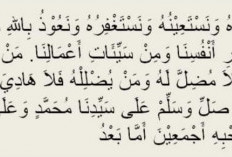 هُ وَنَسْتَعِيْنُهُ وَنَسْتَغْفِرُهُ وَنَعُوْذُ بِاللهِ
رِ أَنْفُسِنَا وَمِنْ سَيِّئَاتِ أَعْمَالِنَا. مَنْ يَ
لَا مُضِلَّ لَهُ وَمَنْ يُضْلِلْهُ فَلَا هَادِيَ
صَلِّ وَسَلِّمْ عَلَى سَيِّدِنَا مُحَمَّدٍ وَعَلَى
حْبِهِ أَجْمَعِيْنَ أَمَّا بَعْدُ